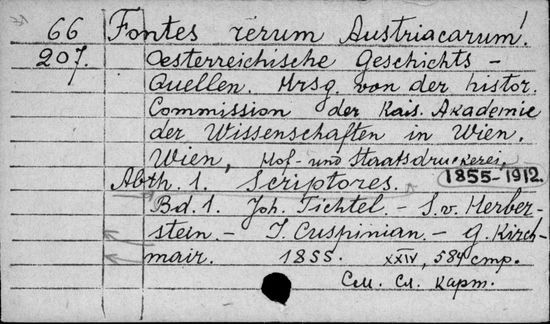 66 Fontes rerum Austriacarum!
207. Oesterreichische Geschichts-
Quellen. Hrsg. von der histor.
Commission der Kais. Akademie
der Wissenschaften in Wien.
Wien, Hof- und Staatsdruckerei,
1855-1912.
Abth. 1. Scriptores.
Bd. 1. Joh. Tichtel. - S. v. Herber-
stein. - J. Cuspinian. - G. Kirch-
mair. 1855. XXIV, 584 стр.
См. сл. карт.